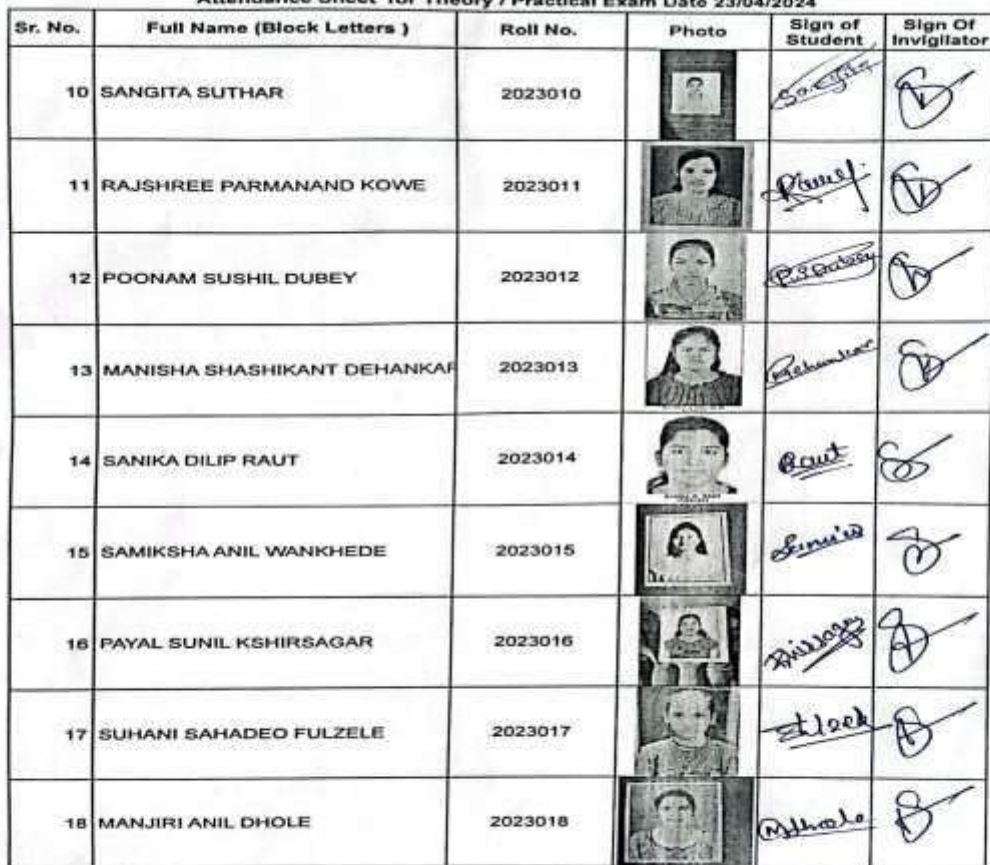 Attendance Sheet for Theory / Practical Exam Date 23/04/2024
Sr. No. Full Name (Block Letters ) Roll No. Photo Sign of Student Sign Of Invigilator
10 SANGITA SUTHAR 2023010
11 RAJSHREE PARMANAND KOWE 2023011
12 POONAM SUSHIL DUBEY 2023012 P.S Dubey
13 MANISHA SHASHIKANT DEHANKAR 2023013
14 SANIKA DILIP RAUT 2023014 Raut
15 SAMIKSHA ANIL WANKHEDE 2023015
16 PAYAL SUNIL KSHIRSAGAR 2023016
17 SUHANI SAHADEO FULZELE 2023017
18 MANJIRI ANIL DHOLE 2023018